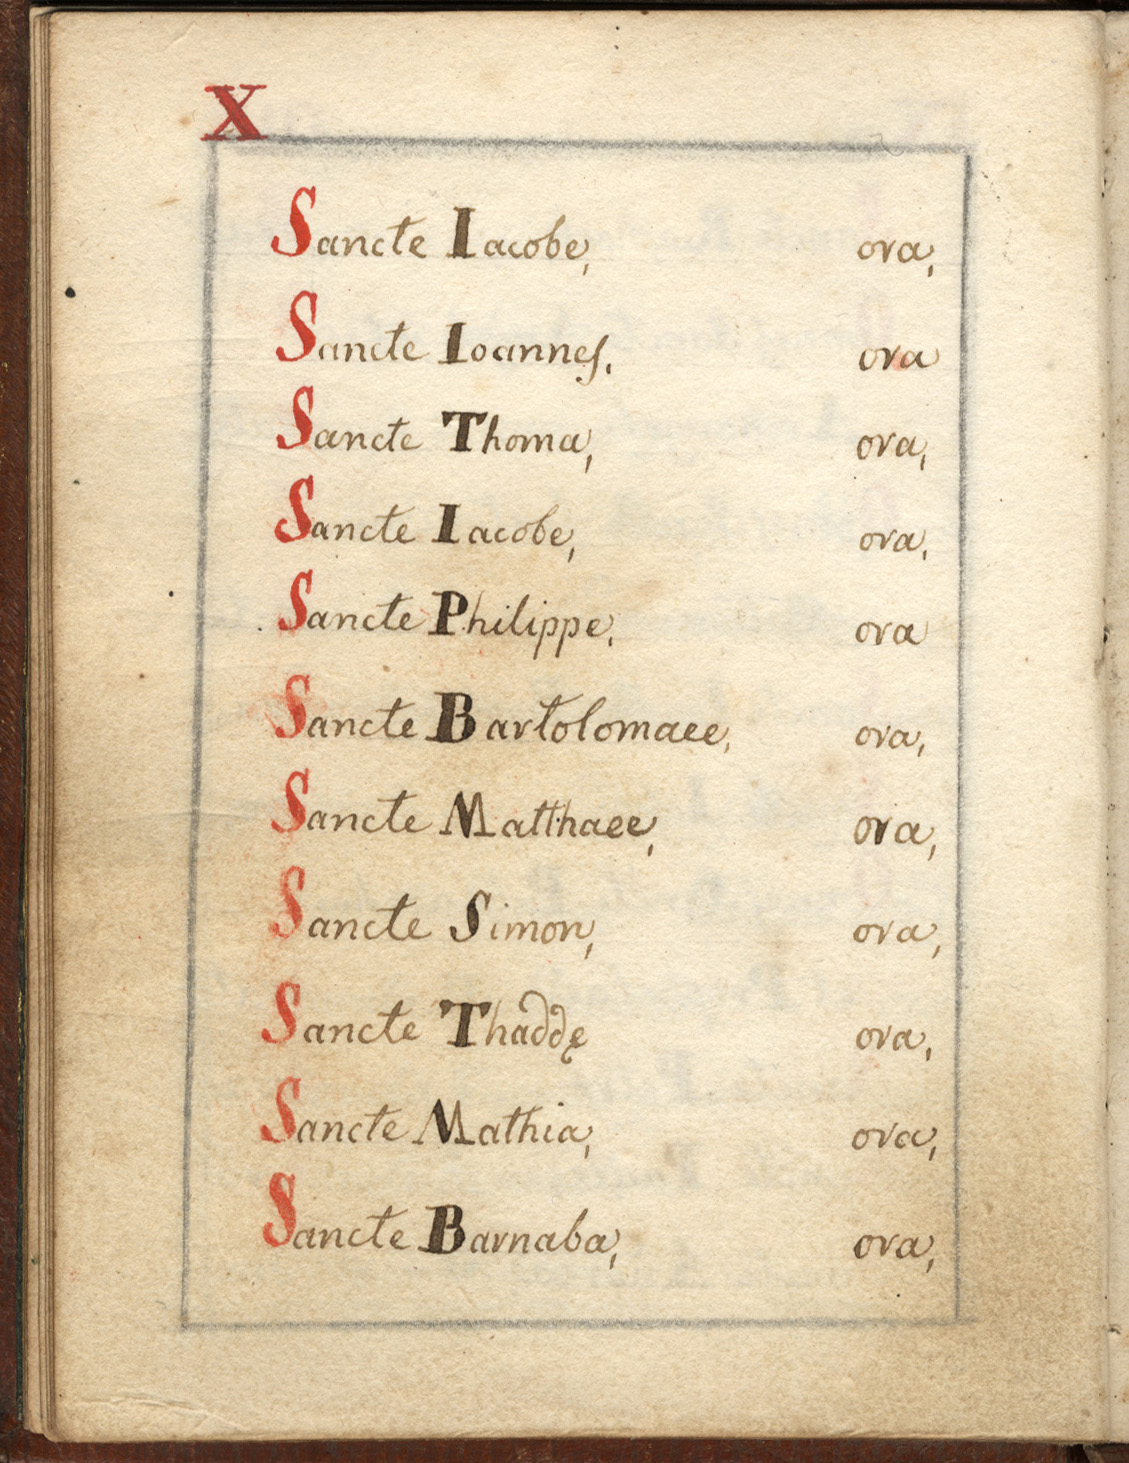 X
Sancte Iacobe, ora,
Sancte Ioannes. ora
Sancte Thoma, ora,
Sancte Iacobe, ora,
Sancte Philippe, ora
Sancte Bartolomaee, ora,
Sancte Matthaee, ora,
Sancte Simon, ora,
Sancte Thaddę ora,
Sancte Mathia, ora,
Sancte Barnaba, ora,